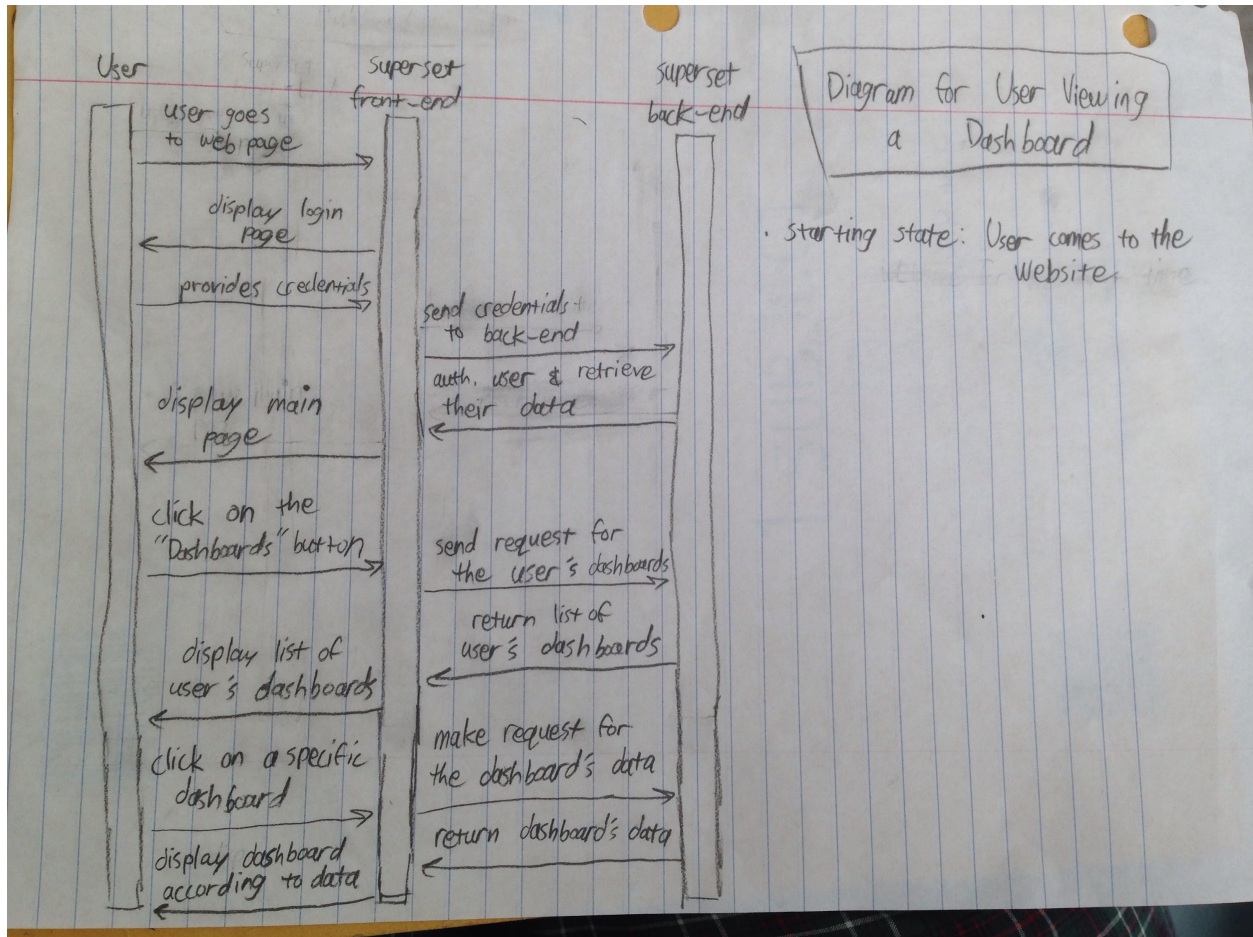 User
superset
front-end
superset
back-end
Diagram for User Viewing
a Dashboard
· starting state: User comes to the
website
user goes
to web page
display login
page
provides credentials
send credentials
to back-end
auth. user & retrieve
their data
display main
page
click on the
"Dashboards" button
send request for
the user's dashboards
return list of
user's dashboards
display list of
user's dashboards
click on a specific
dashboard
make request for
the dashboard's data
return dashboard's data
display dashboard
according to data